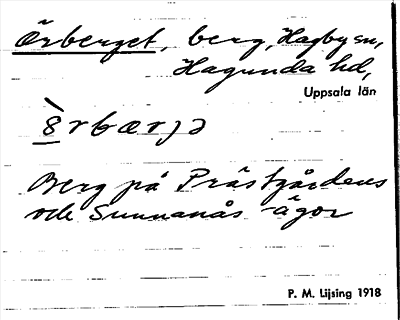 Örberget, berg, Hagby sn,
Hagunda hd,
Uppsala län
Berg på Prästgårdens
och Sunnanås ägor
P. M. Lijsing 1918